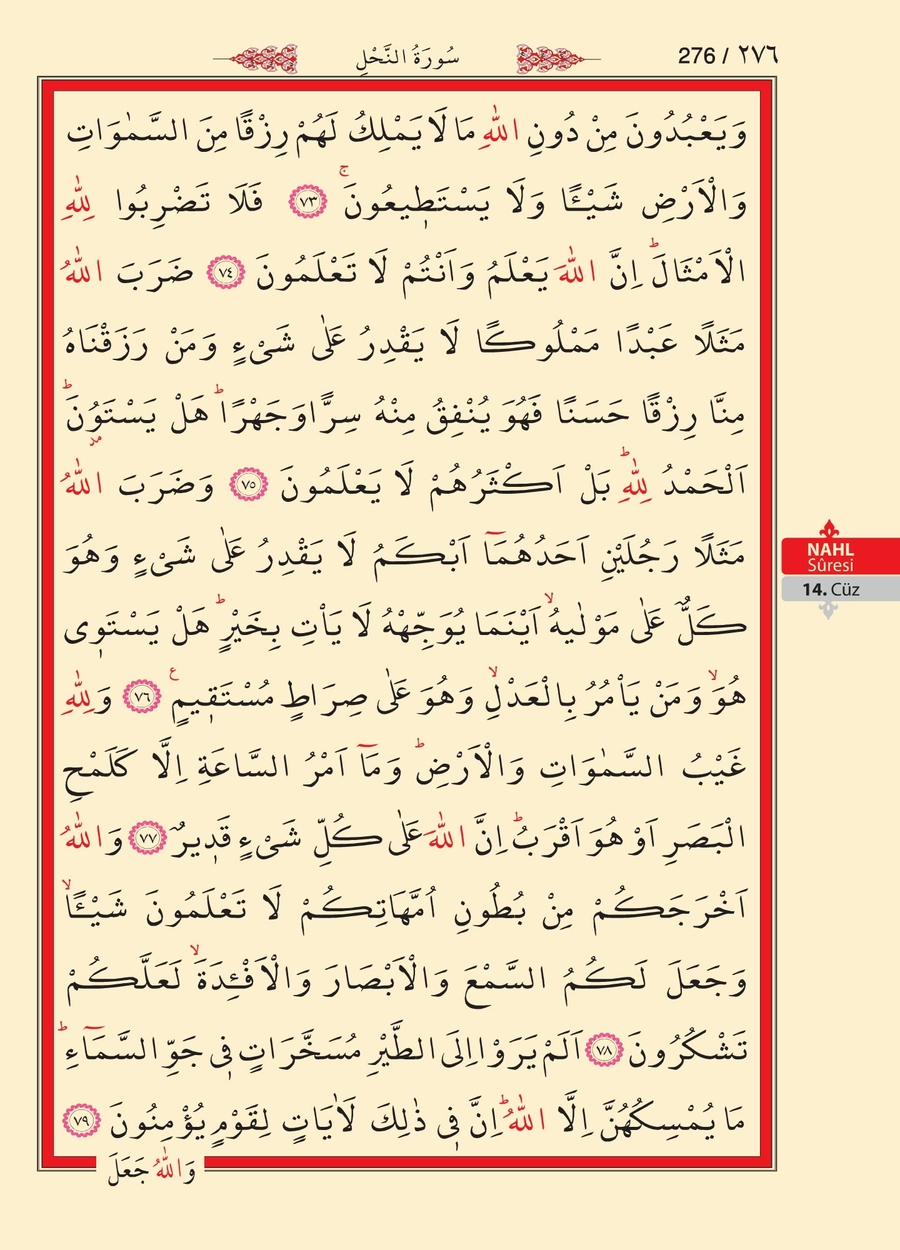 276 / ٢٧٦
سُورَةُ النَّحْلِ
وَيَعْبُدُونَ مِنْ دُونِ اللّٰهِ مَا لَا يَمْلِكُ لَهُمْ رِزْقًا مِنَ السَّمٰوَاتِ
وَالْاَرْضِ شَيْـًٔا وَلَا يَسْتَط۪يعُونَۚ ﴿٧٣﴾ فَلَا تَضْرِبُوا لِلّٰهِ
الْاَمْثَالَۜ اِنَّ اللّٰهَ يَعْلَمُ وَاَنْتُمْ لَا تَعْلَمُونَ ﴿٧٤﴾ ضَرَبَ اللّٰهُ
مَثَلًا عَبْدًا مَمْلُوكًا لَا يَقْدِرُ عَلٰى شَيْءٍ وَمَنْ رَزَقْنَاهُ
مِنَّا رِزْقًا حَسَنًا فَهُوَ يُنْفِقُ مِنْهُ سِرًّا وَجَهْرًاۜ هَلْ يَسْتَوُ۫نَۜ
اَلْحَمْدُ لِلّٰهِۜ بَلْ اَكْثَرُهُمْ لَا يَعْلَمُونَ ﴿٧٥﴾ وَضَرَبَ اللّٰهُ
مَثَلًا رَجُلَيْنِ اَحَدُهُمَٓا اَبْكَمُ لَا يَقْدِرُ عَلٰى شَيْءٍ وَهُوَ
كَلٌّ عَلٰى مَوْلٰيهُۙ اَيْنَمَا يُوَجِّهْهُ لَا يَأْتِ بِخَيْرٍۜ هَلْ يَسْتَو۪ي
هُوَۙ وَمَنْ يَأْمُرُ بِالْعَدْلِۙ وَهُوَ عَلٰى صِرَاطٍ مُسْتَق۪يمٍ۟ ﴿٧٦﴾ وَلِلّٰهِ
غَيْبُ السَّمٰوَاتِ وَالْاَرْضِۜ وَمَٓا اَمْرُ السَّاعَةِ اِلَّا كَلَمْحِ
الْبَصَرِ اَوْ هُوَ اَقْرَبُۜ اِنَّ اللّٰهَ عَلٰى كُلِّ شَيْءٍ قَد۪يرٌ ﴿٧٧﴾ وَاللّٰهُ
اَخْرَجَكُمْ مِنْ بُطُونِ اُمَّهَاتِكُمْ لَا تَعْلَمُونَ شَيْـًٔاۙ
وَجَعَلَ لَكُمُ السَّمْعَ وَالْاَبْصَارَ وَالْاَفْـِٔدَةَۙ لَعَلَّكُمْ
تَشْكُرُونَ ﴿٧٨﴾ اَلَمْ يَرَوْا اِلَى الطَّيْرِ مُسَخَّرَاتٍ ف۪ي جَوِّ السَّمَٓاءِۜ
مَا يُمْسِكُهُنَّ اِلَّا اللّٰهُۜ اِنَّ ف۪ي ذٰلِكَ لَاٰيَاتٍ لِقَوْمٍ يُؤْمِنُونَ ﴿٧٩﴾
وَاللّٰهُ جَعَلَ
NAHL
Sûresi
14. Cüz